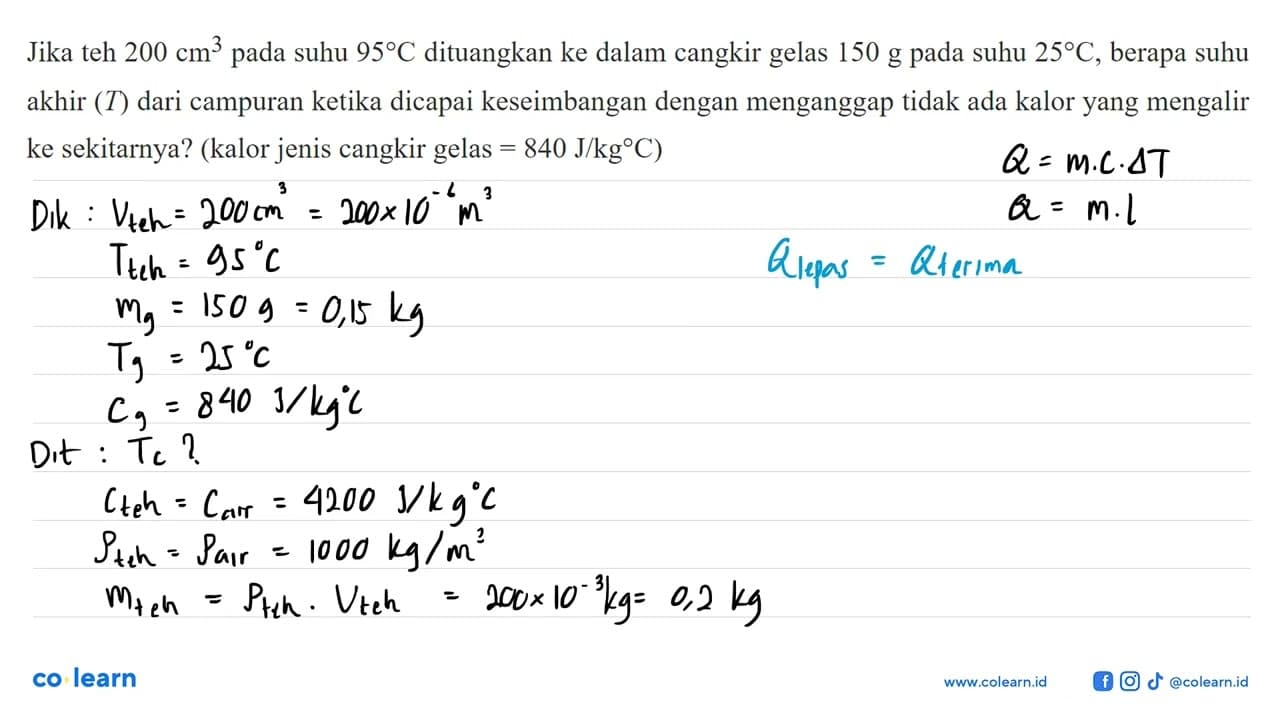 Jika teh 200 cm³ pada suhu 95°C dituangkan ke dalam cangkir gelas 150 g pada suhu 25°C, berapa suhu
akhir (T) dari campuran ketika dicapai keseimbangan dengan menganggap tidak ada kalor yang mengalir
ke sekitarnya? (kalor jenis cangkir gelas = 840 J/kg°C)
Q = m.c.ΔT
Q = m.l
Dik : Vteh = 200 cm³ = 200 × 10⁻⁶ m³
Tteh = 95°C
Qlepas = Qterima
mg = 150 g = 0,15 kg
Tg = 25°C
Cg = 840 J/kg°C
Dit : Tc ?
Cteh = Cair = 4200 J/kg°C
ρteh = ρair = 1000 kg/m³
mteh = ρteh . Vteh = 200 × 10⁻³ kg = 0,2 kg
co·learn
www.colearn.id
@colearn.id